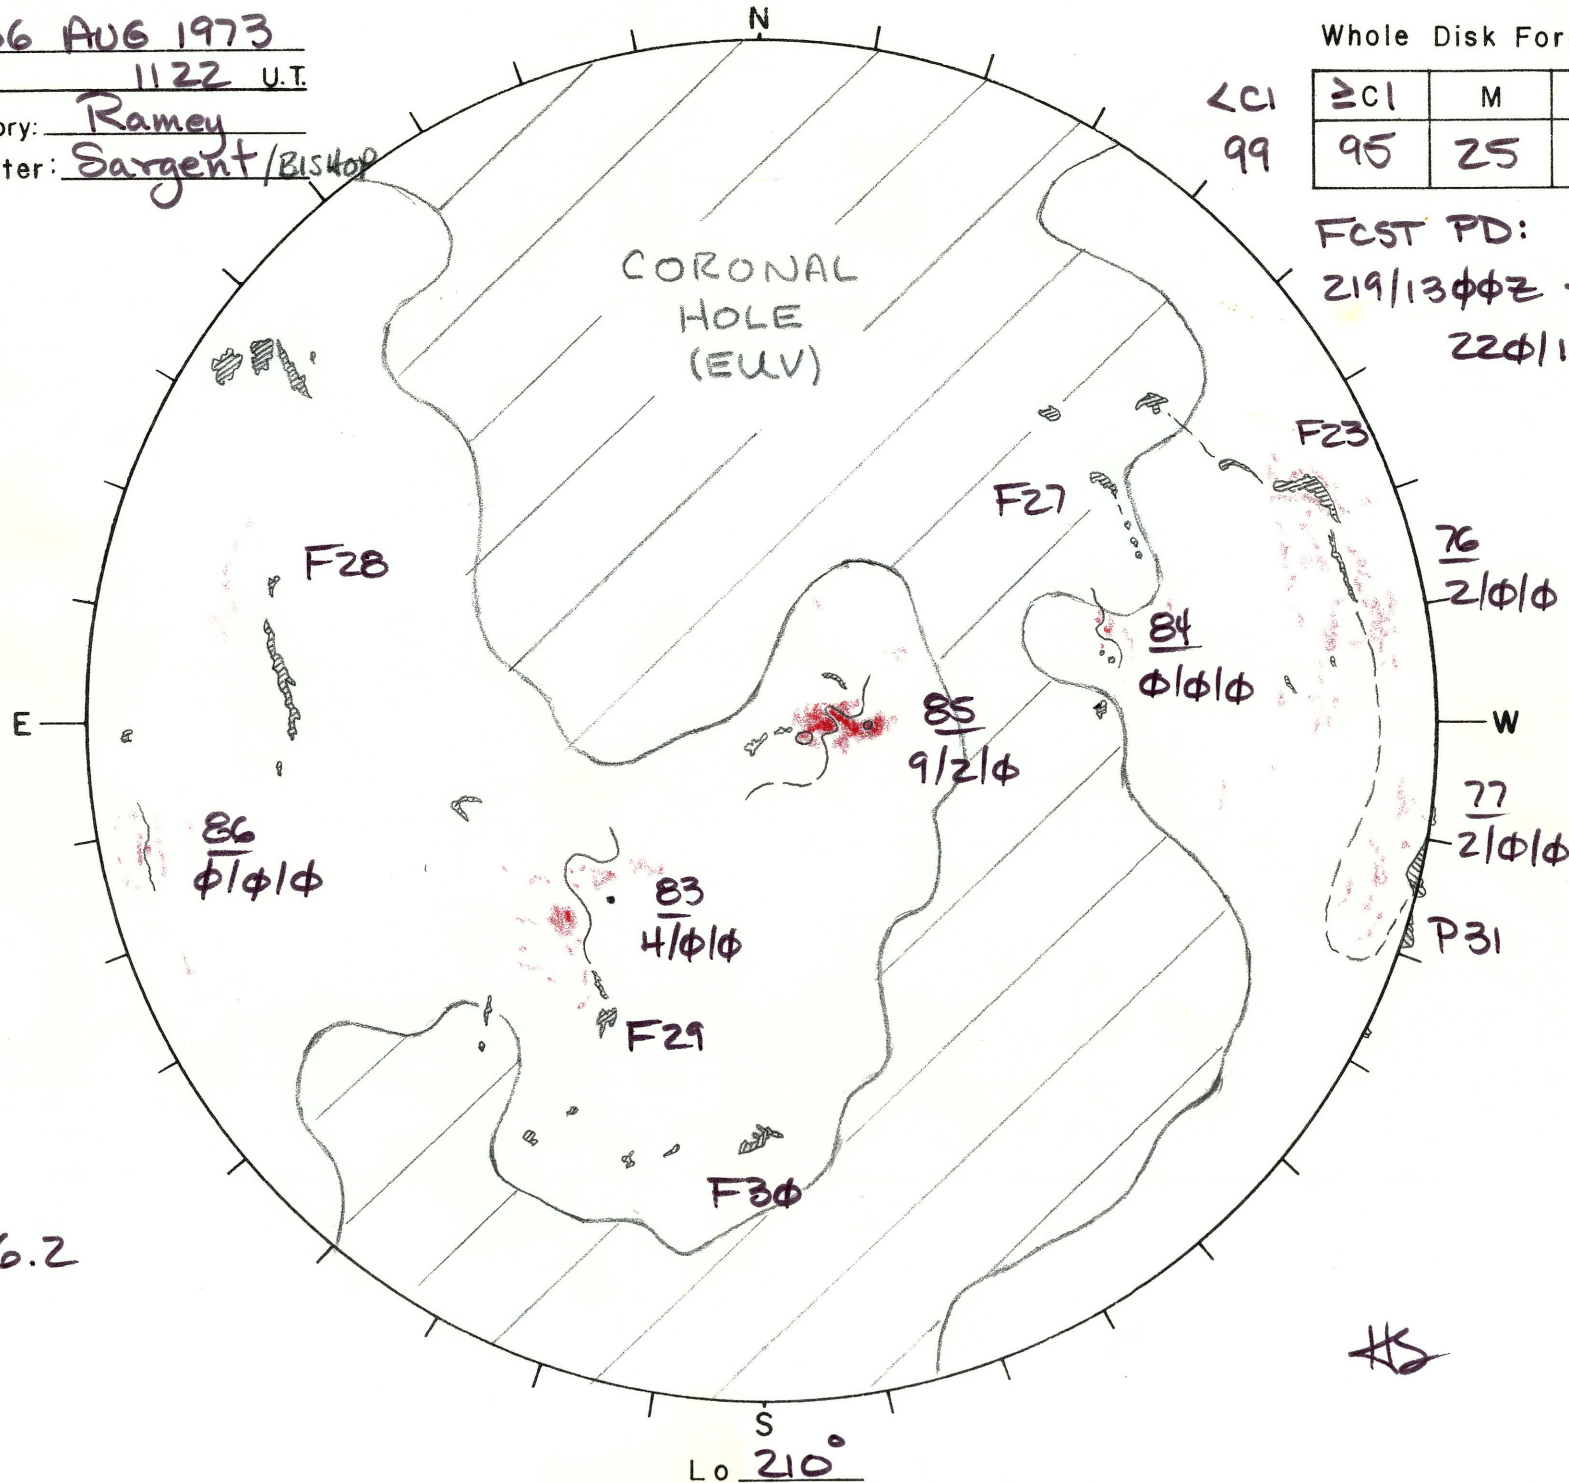 06 AUG 1973
1122 U.T.
ory: Ramey
ter: Sargent/BISHOP
N
Whole Disk For
<C1 ≥C1 M
99 95 25
FCST PD:
219/13ØØZ -
22Ø/1
CORONAL
HOLE
(EUV)
F23
F27
F28
76
2/Ø/Ø
84
Ø/Ø/Ø
E
85
9/2/Ø
W
77
2/Ø/Ø
86
Ø/Ø/Ø
83
4/Ø/Ø
P31
F29
F3Ø
6.2
HS
S
Lo 210°